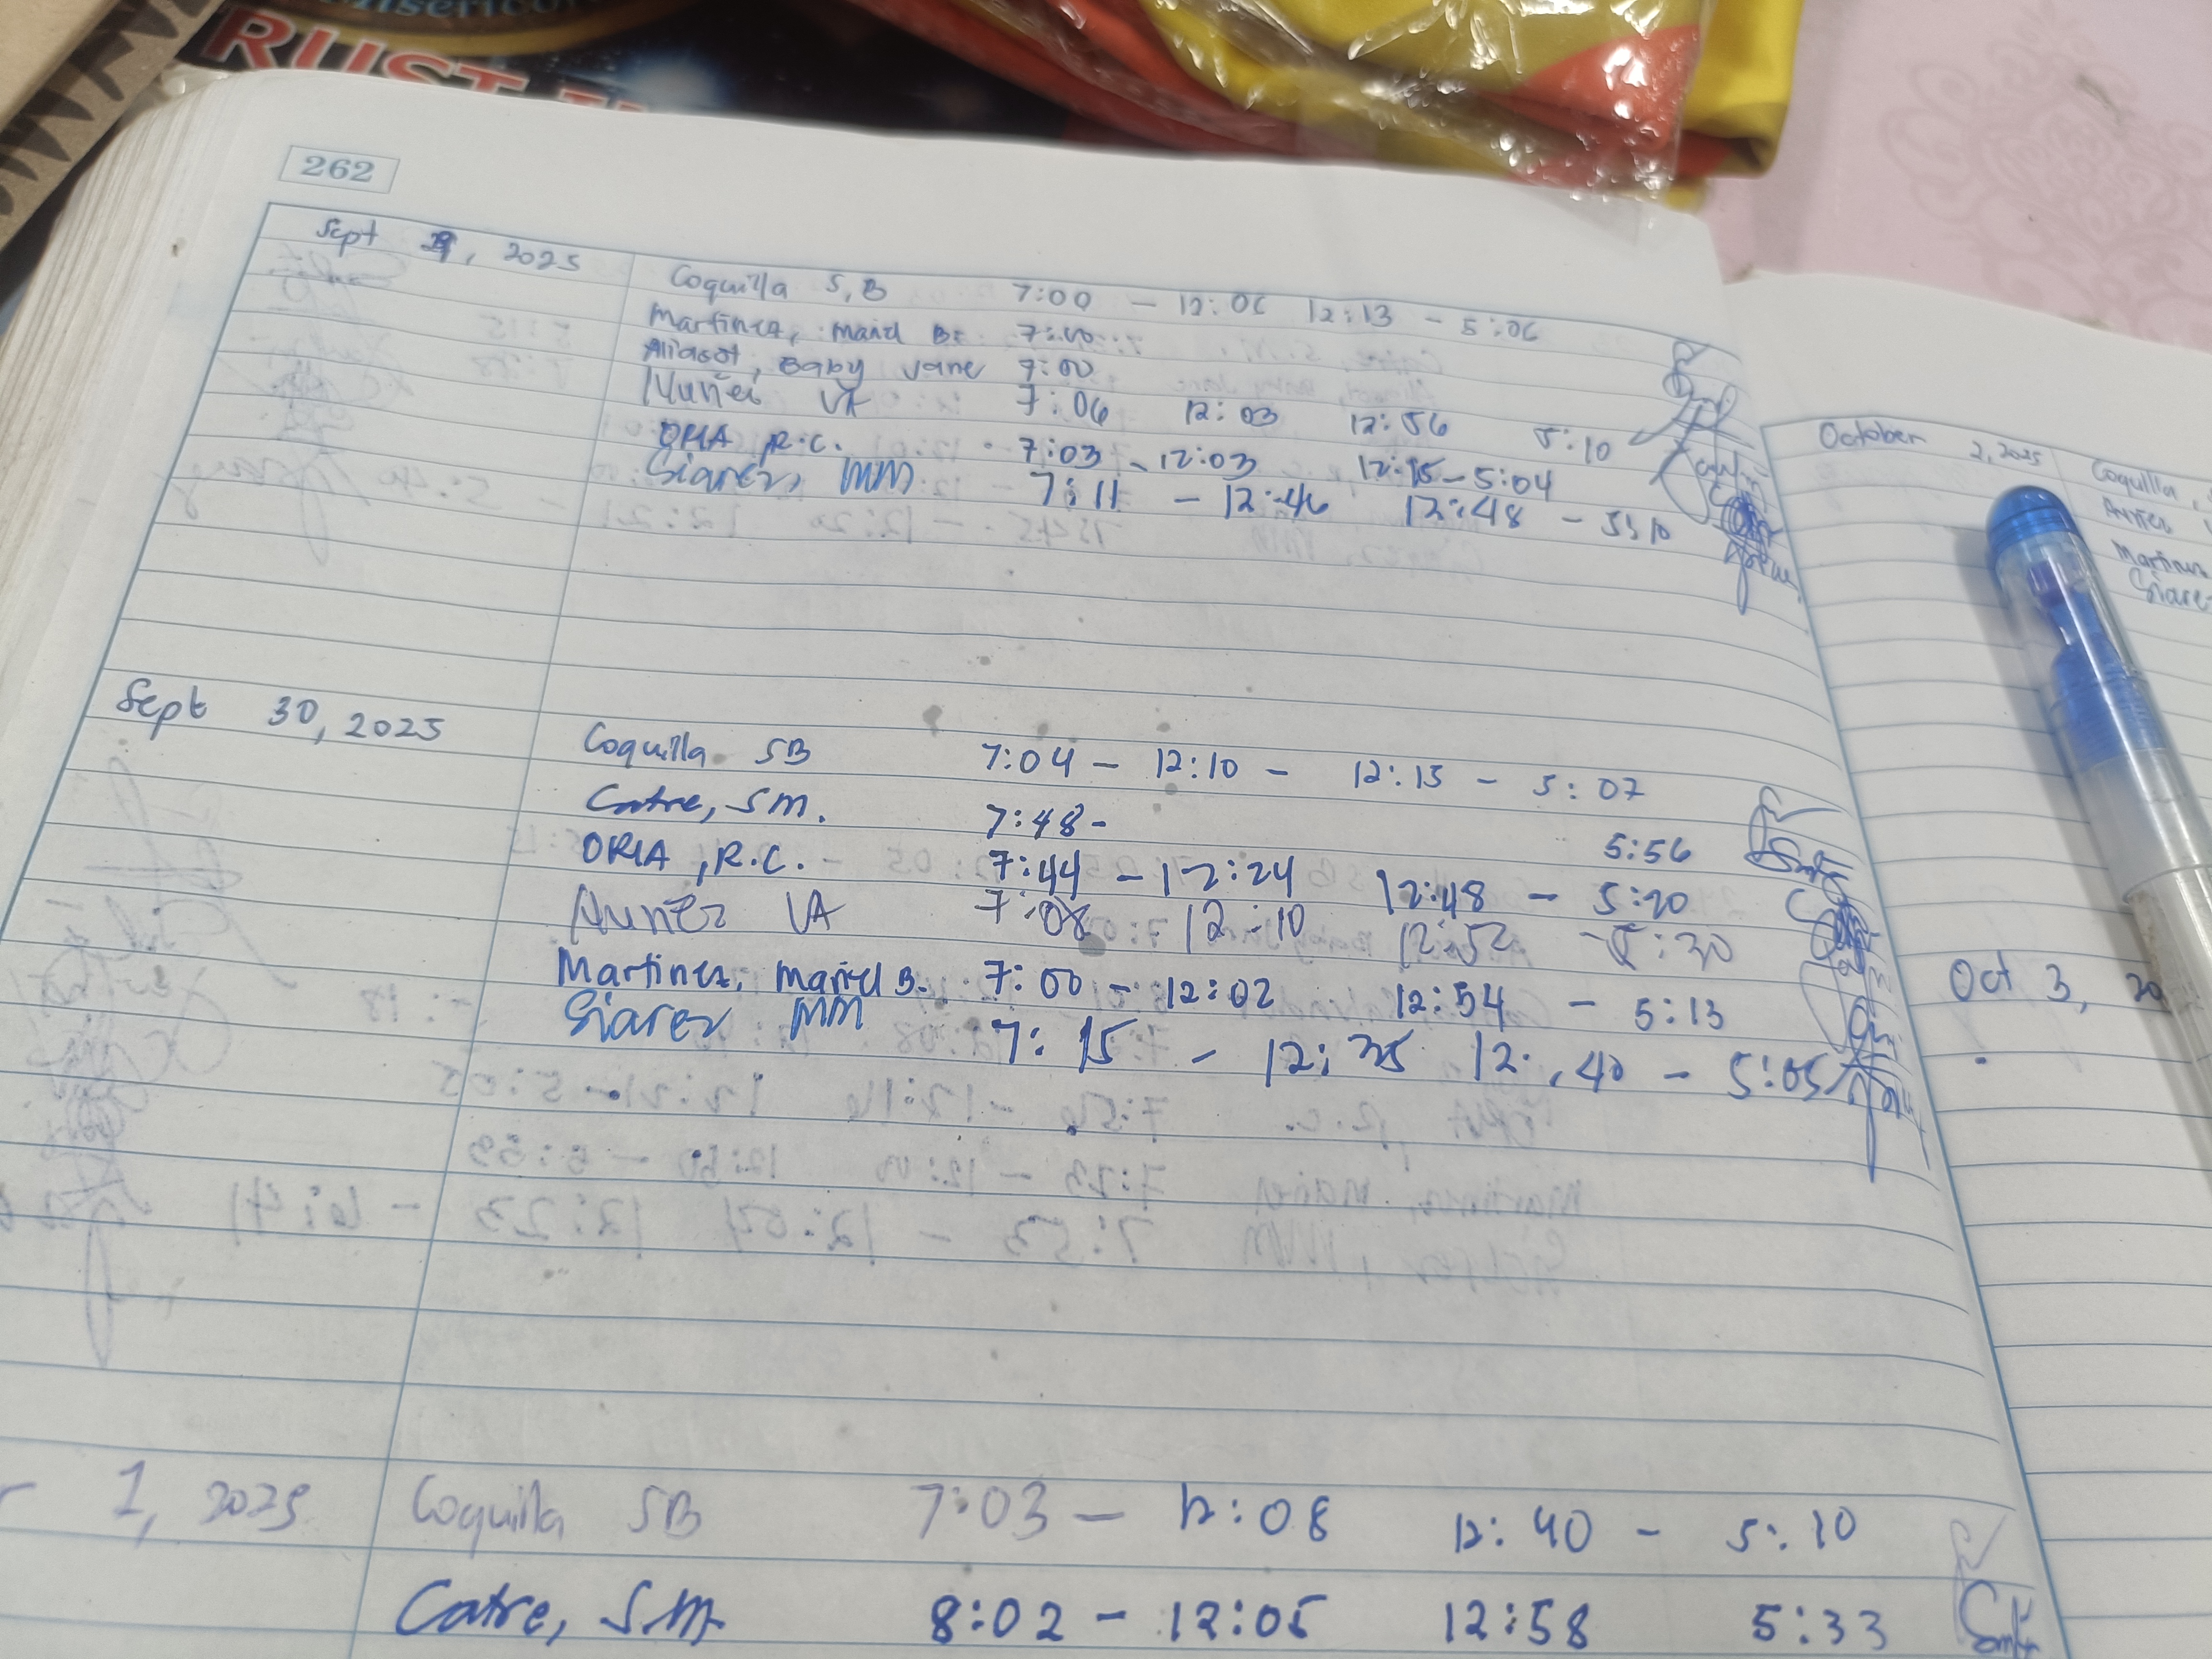 RUST
262
Sept , 2025
Coquilla S,B 7:00 - 12:06 12:13 - 5:06
Martinez, Mariel B. 7:00
Aliasot, Baby Jane 7:00
Nuñez VA 7:06 12:03 12:56 5:10
ORIA, R.C. 7:03 - 12:03 12:15 - 5:04
Siarez, MM 7:11 - 12:46 12:48 - 5:10
Sept 30, 2025
Coquilla SB 7:04 - 12:10 - 12:15 - 5:07
Catre, SM. 7:48 - 5:56
ORIA, R.C. 7:44 - 12:24 12:48 - 5:20
Nuñez VA 7:08 12:10 12:52 - 5:30
Martinez, Mariel B. 7:00 - 12:02 12:54 - 5:13
Siarez MM 7:15 - 12:35 12:40 - 5:05
r 1, 2025
Coquilla SB 7:03 - 12:08 12:40 - 5:10
Catre, SM. 8:02 - 12:05 12:58 5:33
October 2, 2025
Coquilla,
Martinez
Siarez
Oct 3, 20